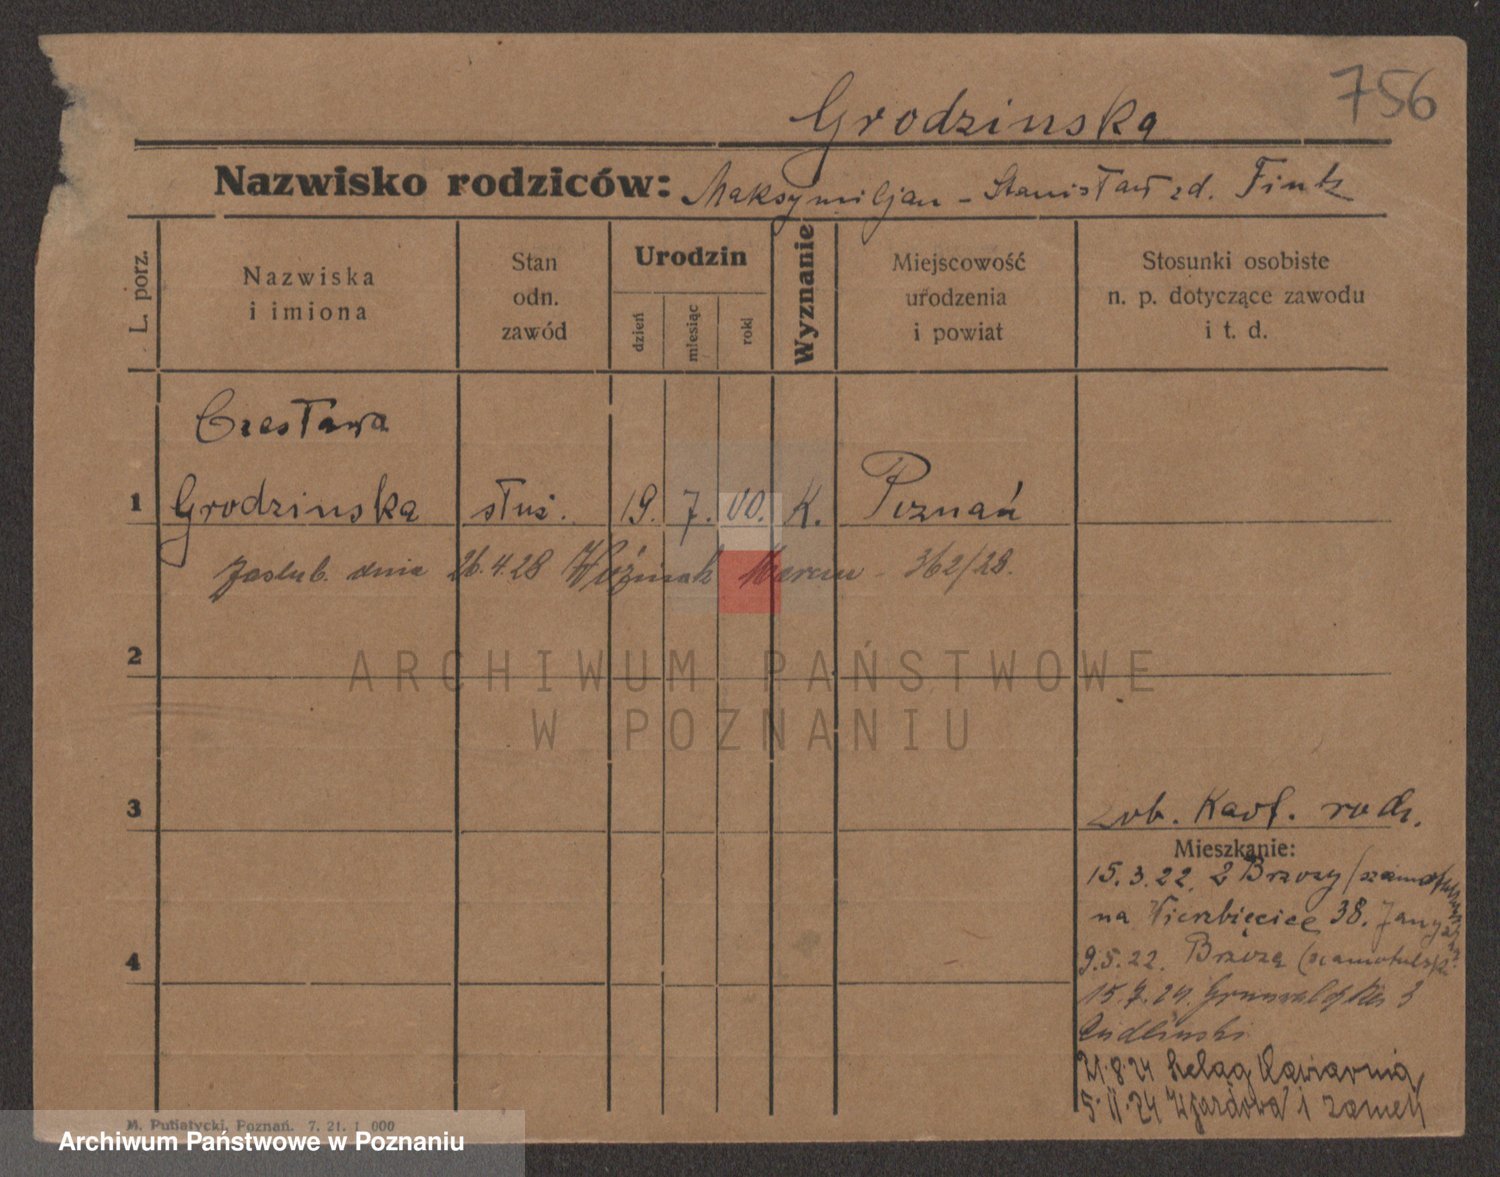 756
Grodzinska
Nazwisko rodziców: Maksymiljan - Stanisław zd. Fintz
L. porz.
Nazwiska
i imiona
Stan
odn.
zawód
Urodzin
dzień
miesiąc
rok
Wyznanie
Miejscowość
urodzenia
i powiat
Stosunki osobiste
n. p. dotyczące zawodu
i t. d.
Czesława
1 Grodzinska służ. 19. 7. 00. K. Poznań
Zaslub. dnia 26.4.28 Woźniak Marcin - 362/28.
2
ARCHIWUM PAŃSTWOWE
W POZNANIU
3
zob. Kart. rodz.
Mieszkanie:
15.3.22. z Brzozy
na Wierzbięcice 38.
4
9.5.22. Brzoza (szamotulski
15.7.24. Grunwaldzka 3
21.8.24 Szeląg Kawiarnia
5.11.24 Wjazdowa 1 zamek
M. Putiatycki, Poznań. 7. 21. 1 000
Archiwum Państwowe w Poznaniu